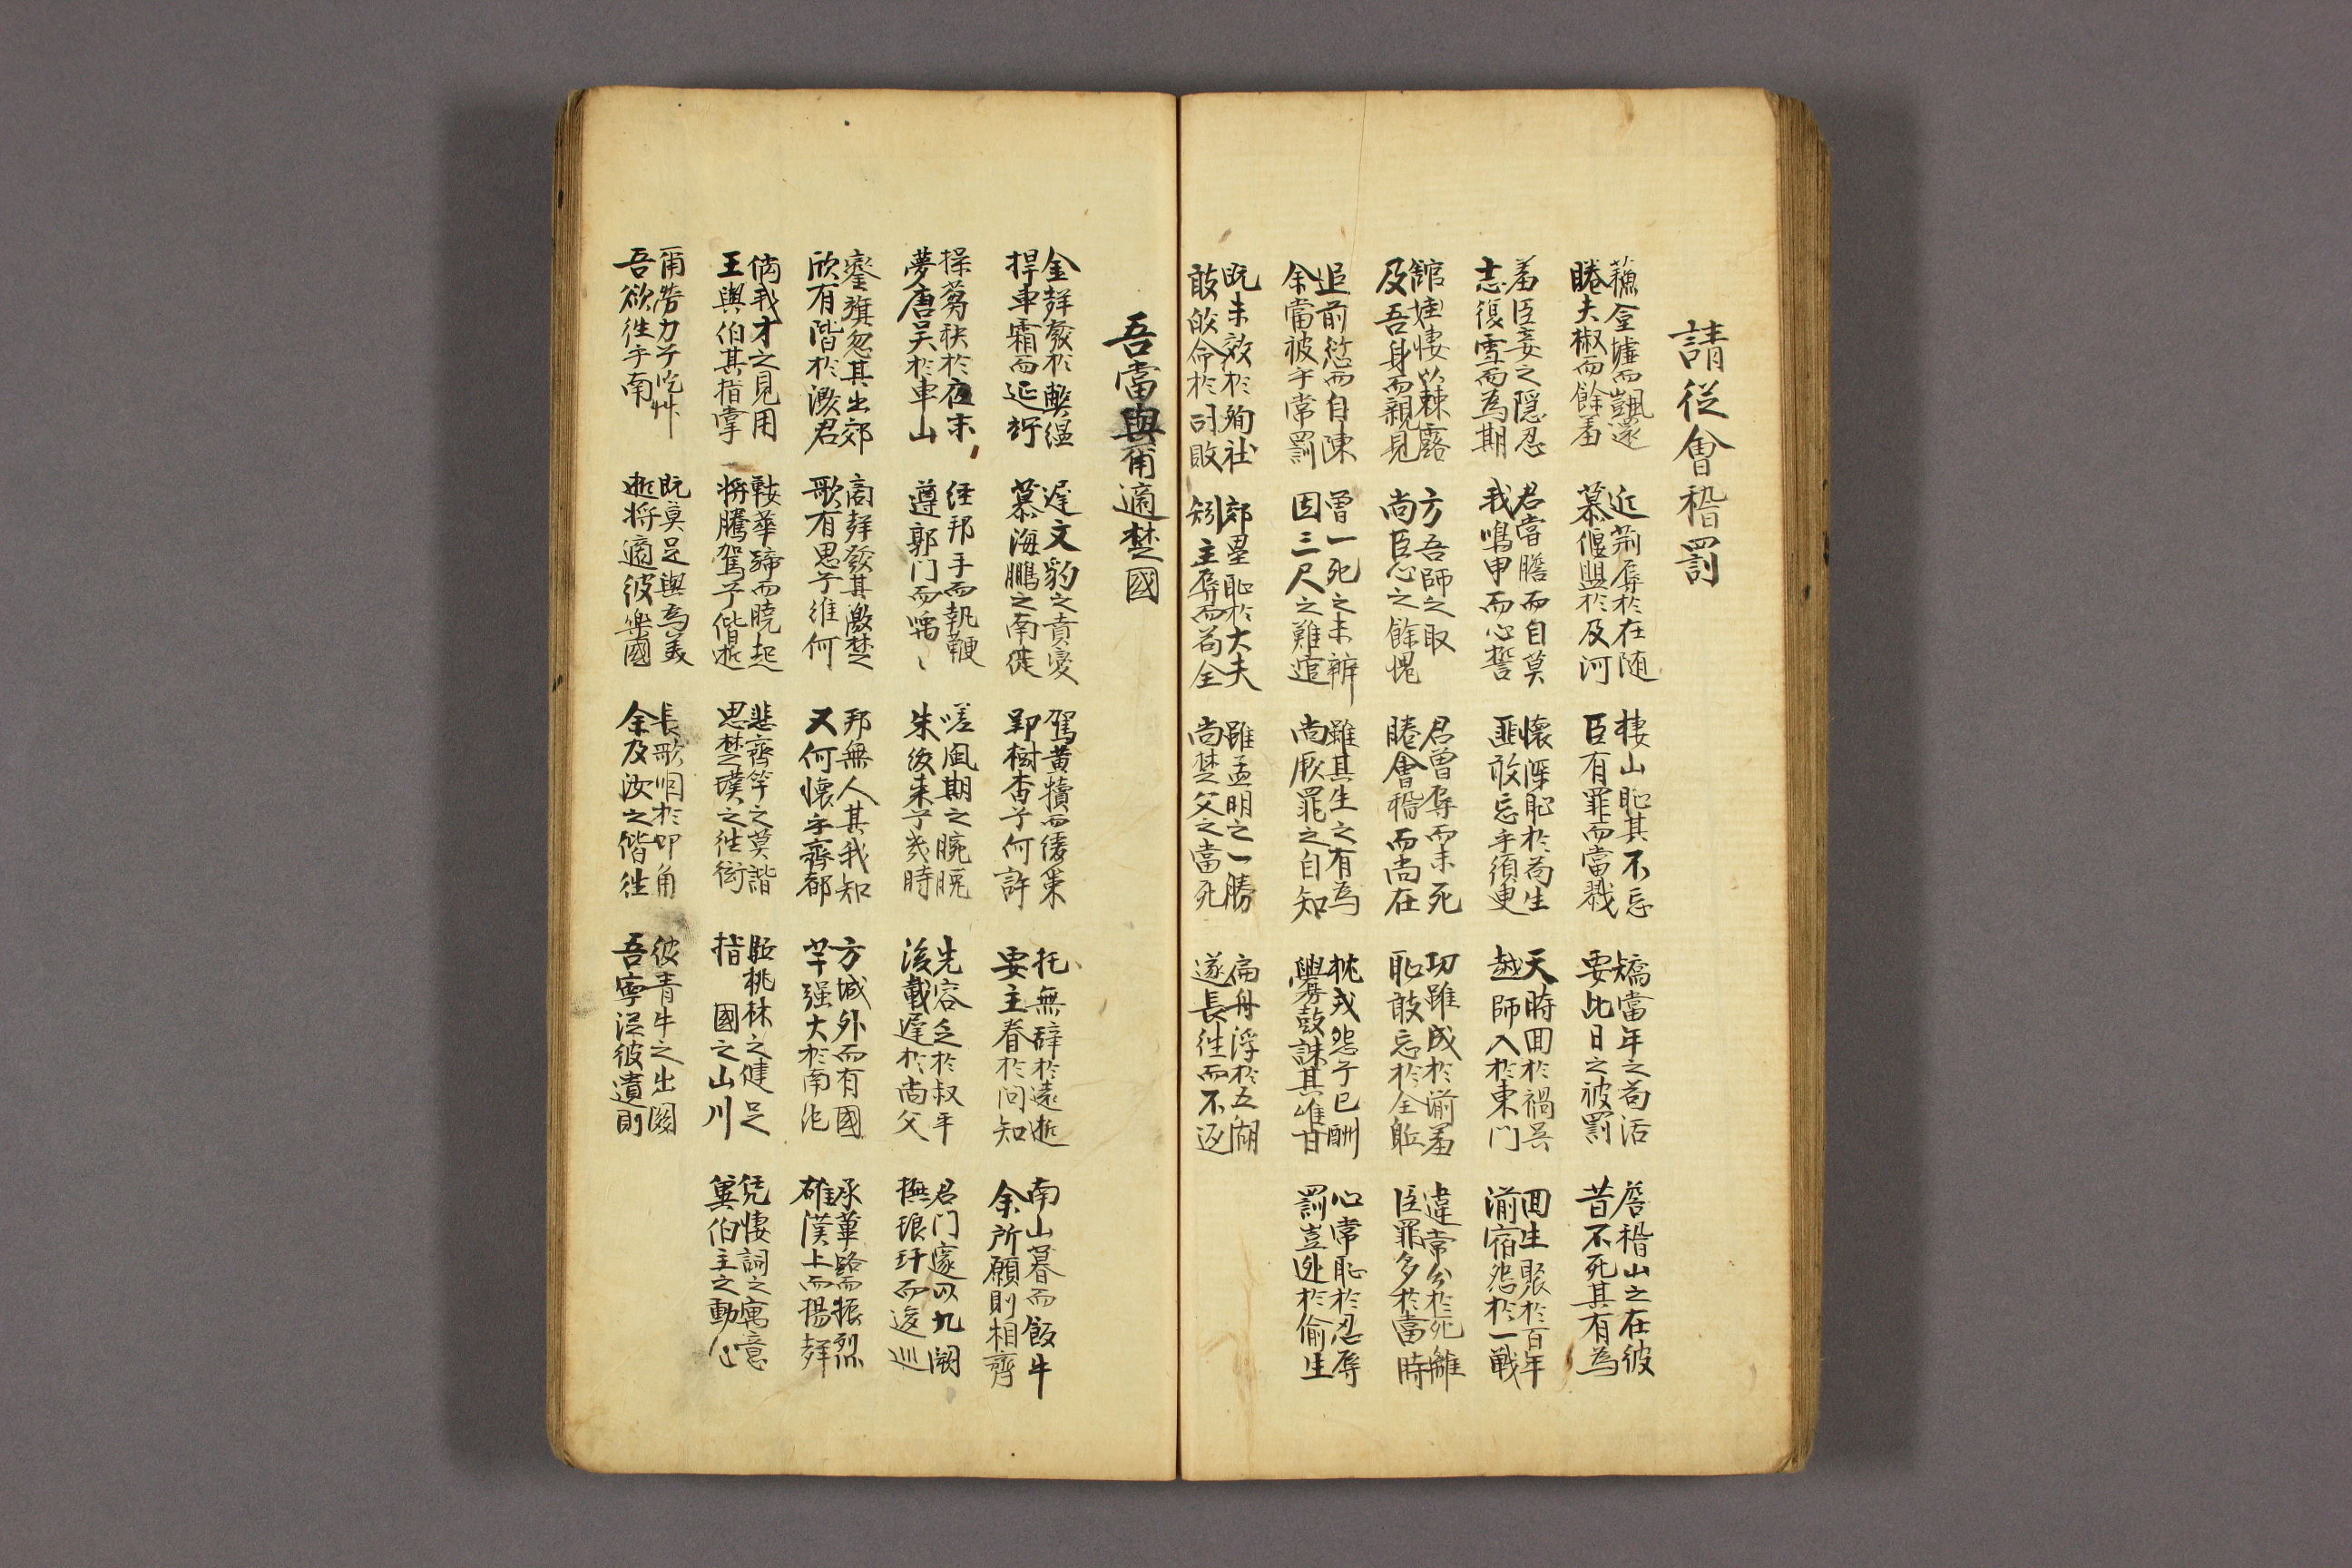 請從會稽罰
蘓臺墟而颽還
睠夫椒而餘羞
近荊辱於在随
慕偃盟於及河
棲山恥其不忘
臣有罪而當戮
矯當年之苟活
要比日之被罰
詹稽山之在彼
昔不死其有為
羞臣妾之隠忍
志復雪而為期
君嘗膽而自莫
我鳴申而心誓
懷深恥於苟生
匪敢忘乎須臾
天時回於禍吳
越師入於東門
回生聚於百年
湔宿怨於一戰
館娃悽以棘露
及吾身而親見
方吾師之取
尚臣心之餘愧
君曾辱而未死
睠會稽而尚在
功雖成於湔羞
恥敢忘於全軀
違常分於死離
臣罪多於當時
追前愆而自陳
余當被乎常罰
曾一死之未辦
因三尺之難逭
雖其生之有為
尚厥罪之自知
枕戎怨乎已酬
釁鼓誅其唯甘
心常恥於忍辱
罰豈逃於偷生
旣未效於殉社
敢皈命於司敗
郊壘恥於大夫
矧主辱而苟全
雖孟明之一勝
尚楚父之當死
扁舟浮於五湖
遂長徃而不返
吾當與甬適楚國
金聲發於輿溫
捍車霜而延竚
遅文豹之賁變
慕海鵬之南徙
駕黃犢而緩策
郢樹杳乎何許
托無辞於遠逝
要主眷於問知
南山暮而飯牛
余所願則相齊
操芻秣於夜未
夢唐吴於車山
経邦手而執鞭
遵郭門而喁〻
嗟風期之腕腕
朱後来乎幾時
先容乏於叔牙
後載遅於尚父
君门邃以九闕
撫琅玕而逡巡
鑾旗忽其出郊
欣有階於激君
商聲發其激楚
歌有思乎維何
邦無人其我知
又何懷乎齊都
方城外而有國
芉强大於南沱
承蓽路而振烈
雄漢上而揚聲
倘我才之見用
王與伯其指掌
鞍華蹄而曉起
将騰駕乎偕逝
悲齊竽之莫諧
思楚璞之徃衒
駈桃林之健足
指 國之山川
凭悽詞之寓意
冀伯主之動心
甬勞力乎吃艸
吾欲徃乎南
旣莫足與為美
逝将適彼樂國
長歌咽於叩角
余及汝之偕徃
彼青牛之出關
吾寧從彼遺則